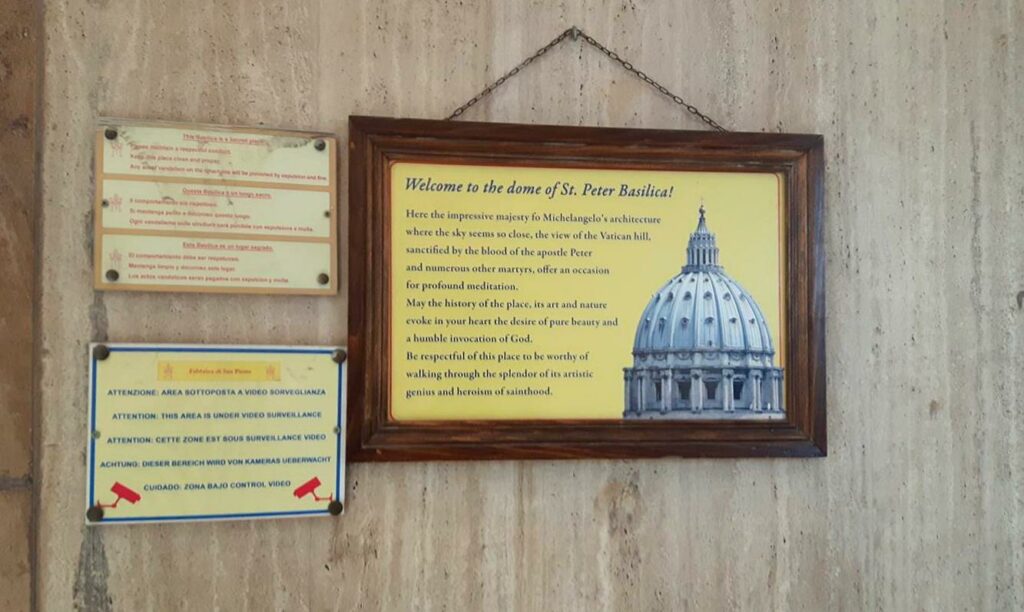 This Basilica is a sacred place.
Please maintain a respectful conduct.
Keep this place clean and proper.
Any act of vandalism on the structures will be punished by expulsion and fine
Questa Basilica è un luogo sacro.
Il comportamento sia rispettoso.
Si mantenga pulito e decoroso questo luogo.
Ogni vandalismo sulle strutture sarà punibile con espulsione e multa.
Esta Basilica es un lugar sagrado.
El comportamiento debe ser respetuoso.
Mantenga limpio y decoroso este lugar.
Los actos vandálicos seran pagados con expulsion y multa
Fabbrica di San Pietro
ATTENZIONE: AREA SOTTOPOSTA A VIDEO SORVEGLIANZA
ATTENTION: THIS AREA IS UNDER VIDEO SURVEILLANCE
ATTENTION: CETTE ZONE EST SOUS SURVEILLANCE VIDEO
ACHTUNG: DIESER BEREICH WIRD VON KAMERAS UEBERWACHT
CUIDADO: ZONA BAJO CONTROL VIDEO
Welcome to the dome of St. Peter Basilica!
Here the impressive majesty fo Michelangelo's architecture
where the sky seems so close, the view of the Vatican hill,
sanctified by the blood of the apostle Peter
and numerous other martyrs, offer an occasion
for profound meditation.
May the history of the place, its art and nature
evoke in your heart the desire of pure beauty and
a humble invocation of God.
Be respectful of this place to be worthy of
walking through the splendor of its artistic
genius and heroism of sainthood.